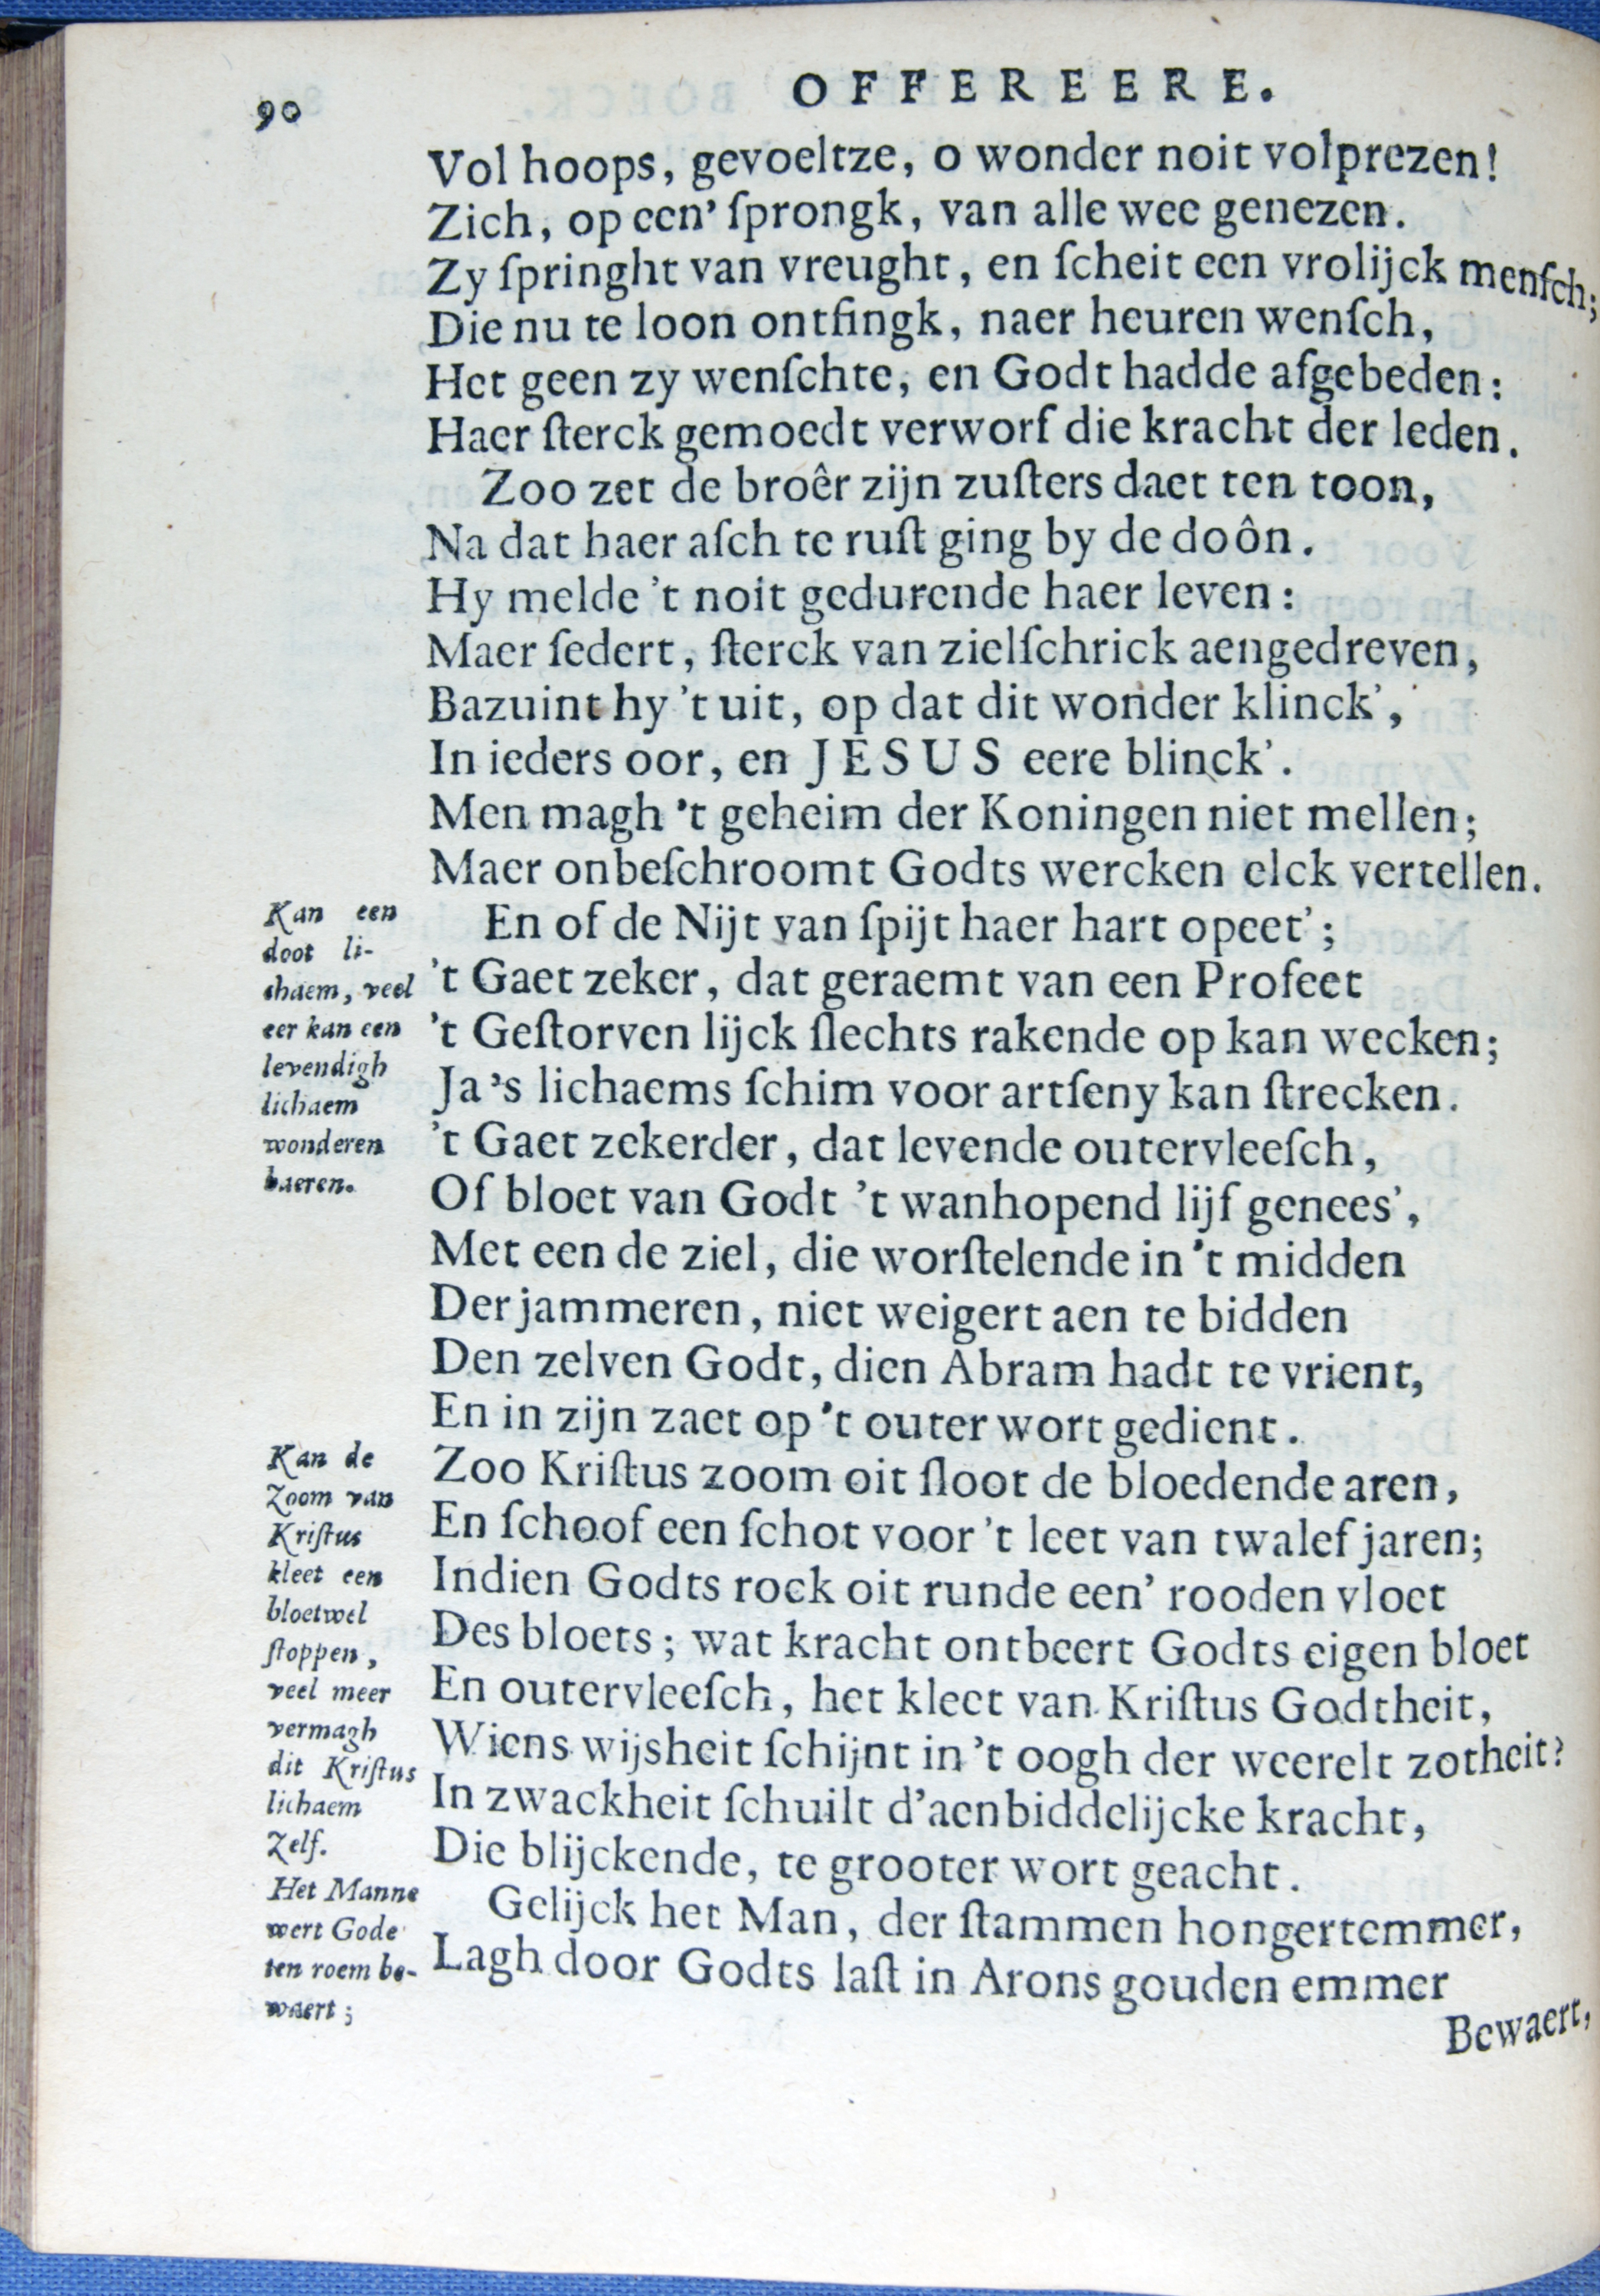 90
OFFEREERE.
Vol hoops, gevoeltze, o wonder noit volprezen!
Zich, op een' ſprongk, van alle wee genezen.
Zy ſpringht van vreught, en ſcheit een vrolijck menſch;
Die nu te loon ontfingk, naer heuren wenſch,
Het geen zy wenſchte, en Godt hadde afgebeden:
Haer ſterck gemoedt verworf die kracht der leden.
Zoo zet de broêr zijn zuſters daet ten toon,
Na dat haer aſch te ruſt ging by de doôn.
Hy melde 't noit gedurende haer leven:
Maer ſedert, ſterck van zielſchrick aengedreven,
Bazuint hy 't uit, op dat dit wonder klinck',
In ieders oor, en JESUS eere blinck'.
Men magh 't geheim der Koningen niet mellen;
Maer onbeſchroomt Godts wercken elck vertellen.
En of de Nijt van ſpijt haer hart opeet';
't Gaet zeker, dat geraemt van een Profeet
't Geſtorven lijck ſlechts rakende op kan wecken;
Ja 's lichaems ſchim voor artſeny kan ſtrecken.
't Gaet zekerder, dat levende outervleeſch,
Of bloet van Godt 't wanhopend lijf genees',
Met een de ziel, die worſtelende in 't midden
Der jammeren, niet weigert aen te bidden
Den zelven Godt, dien Abram hadt te vrient,
En in zijn zaet op 't outer wort gedient.
Zoo Kriſtus zoom oit ſloot de bloedende aren,
En ſchoof een ſchot voor 't leet van twalef jaren;
Indien Godts rock oit runde een' rooden vloet
Des bloets; wat kracht ontbeert Godts eigen bloet
En outervleeſch, het kleet van Kriſtus Godtheit,
Wiens wijsheit ſchijnt in 't oogh der weerelt zotheit?
In zwackheit ſchuilt d'aenbiddelijcke kracht,
Die blijckende, te grooter wort geacht.
Gelijck het Man, der ſtammen hongertemmer,
Lagh door Godts laſt in Arons gouden emmer
Bewaert,
Kan een
doot li-
chaem, veel
eer kan een
levendigh
lichaem
wonderen
baeren.
Kan de
Zoom van
Kriſtus
kleet een
bloetwel
ſtoppen,
veel meer
vermagh
dit Kriſtus
lichaem
Zelf.
Het Manne
wert Gode
ten roem be-
waert;